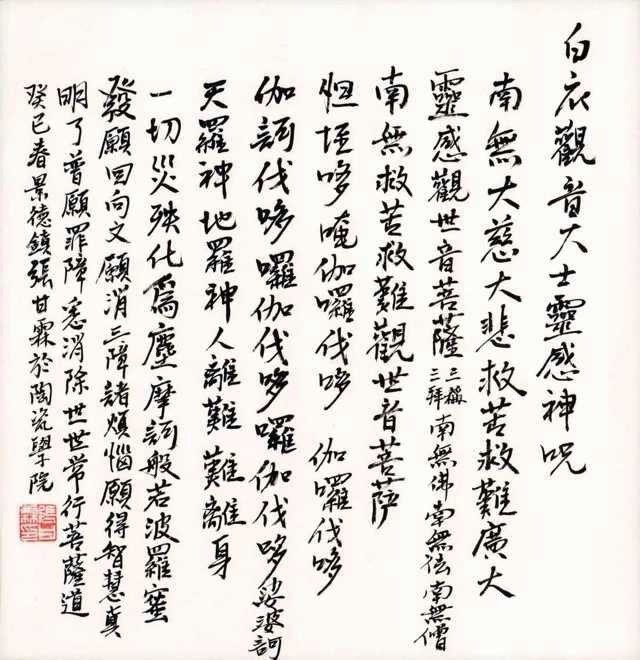 白衣觀音大士靈感神咒
南無大慈大悲救苦救難廣大
靈感觀世音菩薩三稱三拜南無佛南無法南無僧
南無救苦救難觀世音菩萨
怛垤哆唵伽囉伐哆 伽囉伐哆
伽訶伐哆囉伽伐哆囉伽伐哆娑婆訶
天羅神地羅神人離難難離身
一切災殃化爲塵摩訶般若波羅蜜
發願回向文願消三障諸煩惱願得智慧真
明了普願罪障悉消除世世常行菩薩道
癸巳春景德鎮張甘霖於陶瓷學院